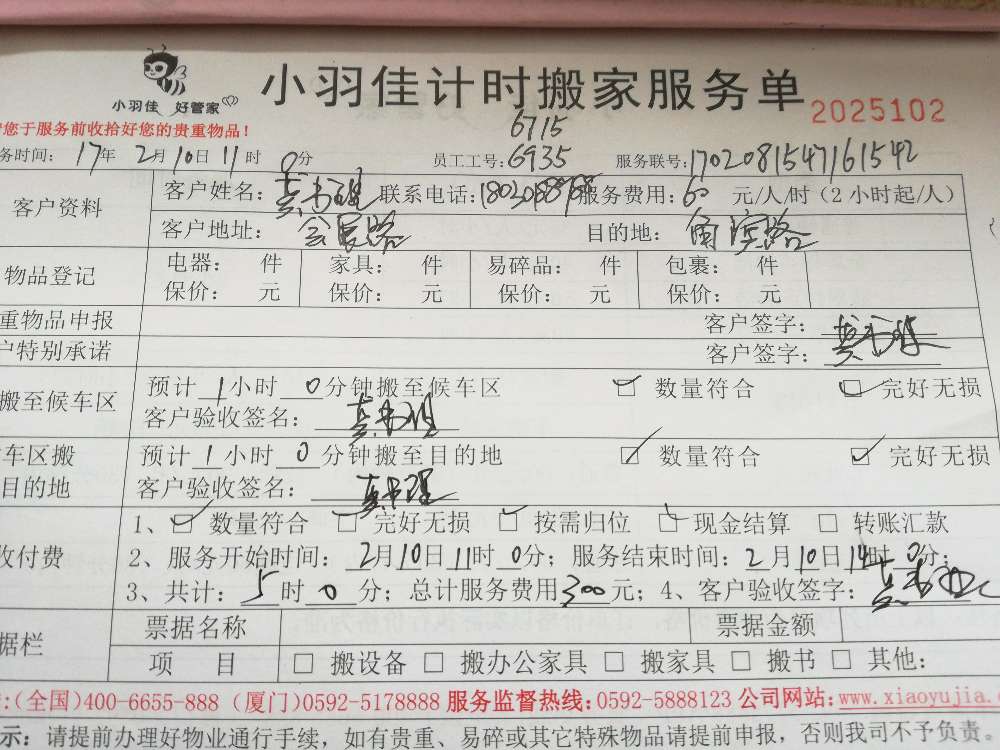 小羽佳 好管家
小羽佳计时搬家服务单 2025102
您于服务前收拾好您的贵重物品！
6715
务时间：17年2月10日11时0分 员工工号：6935 服务联号：1702081547161542
客户资料
客户姓名： 联系电话： 服务费用：60元/人/时（2小时起/人）
客户地址：会展路 目的地：
物品登记
电器： 件 家具： 件 易碎品： 件 包裹： 件
保价： 元 保价： 元 保价： 元 保价： 元
重物品申报 客户签字：
户特别承诺 客户签字：
搬至候车区
预计1小时0分钟搬至候车区 ☑ 数量符合 ☑ 完好无损
客户验收签名：
车区搬
目的地
预计1小时0分钟搬至目的地 ☑ 数量符合 ☑ 完好无损
客户验收签名：
收付费
1、☑ 数量符合 ☑ 完好无损 ☑ 按需归位 ☑ 现金结算 □ 转账汇款
2、服务开始时间：2月10日11时0分；服务结束时间：2月10日14时0分；
3、共计：5时0分；总计服务费用300元；4、客户验收签字：
据栏
票据名称 票据金额
项 目 □ 搬设备 □ 搬办公家具 □ 搬家具 □ 搬书 □ 其他：
(全国)400-6655-888 (厦门)0592-5178888 服务监督热线：0592-5888123 公司网站：www.xiaoyujia.
示：请提前办理好物业通行手续，如有贵重、易碎或其它特殊物品请提前申报，否则我司不予负责。